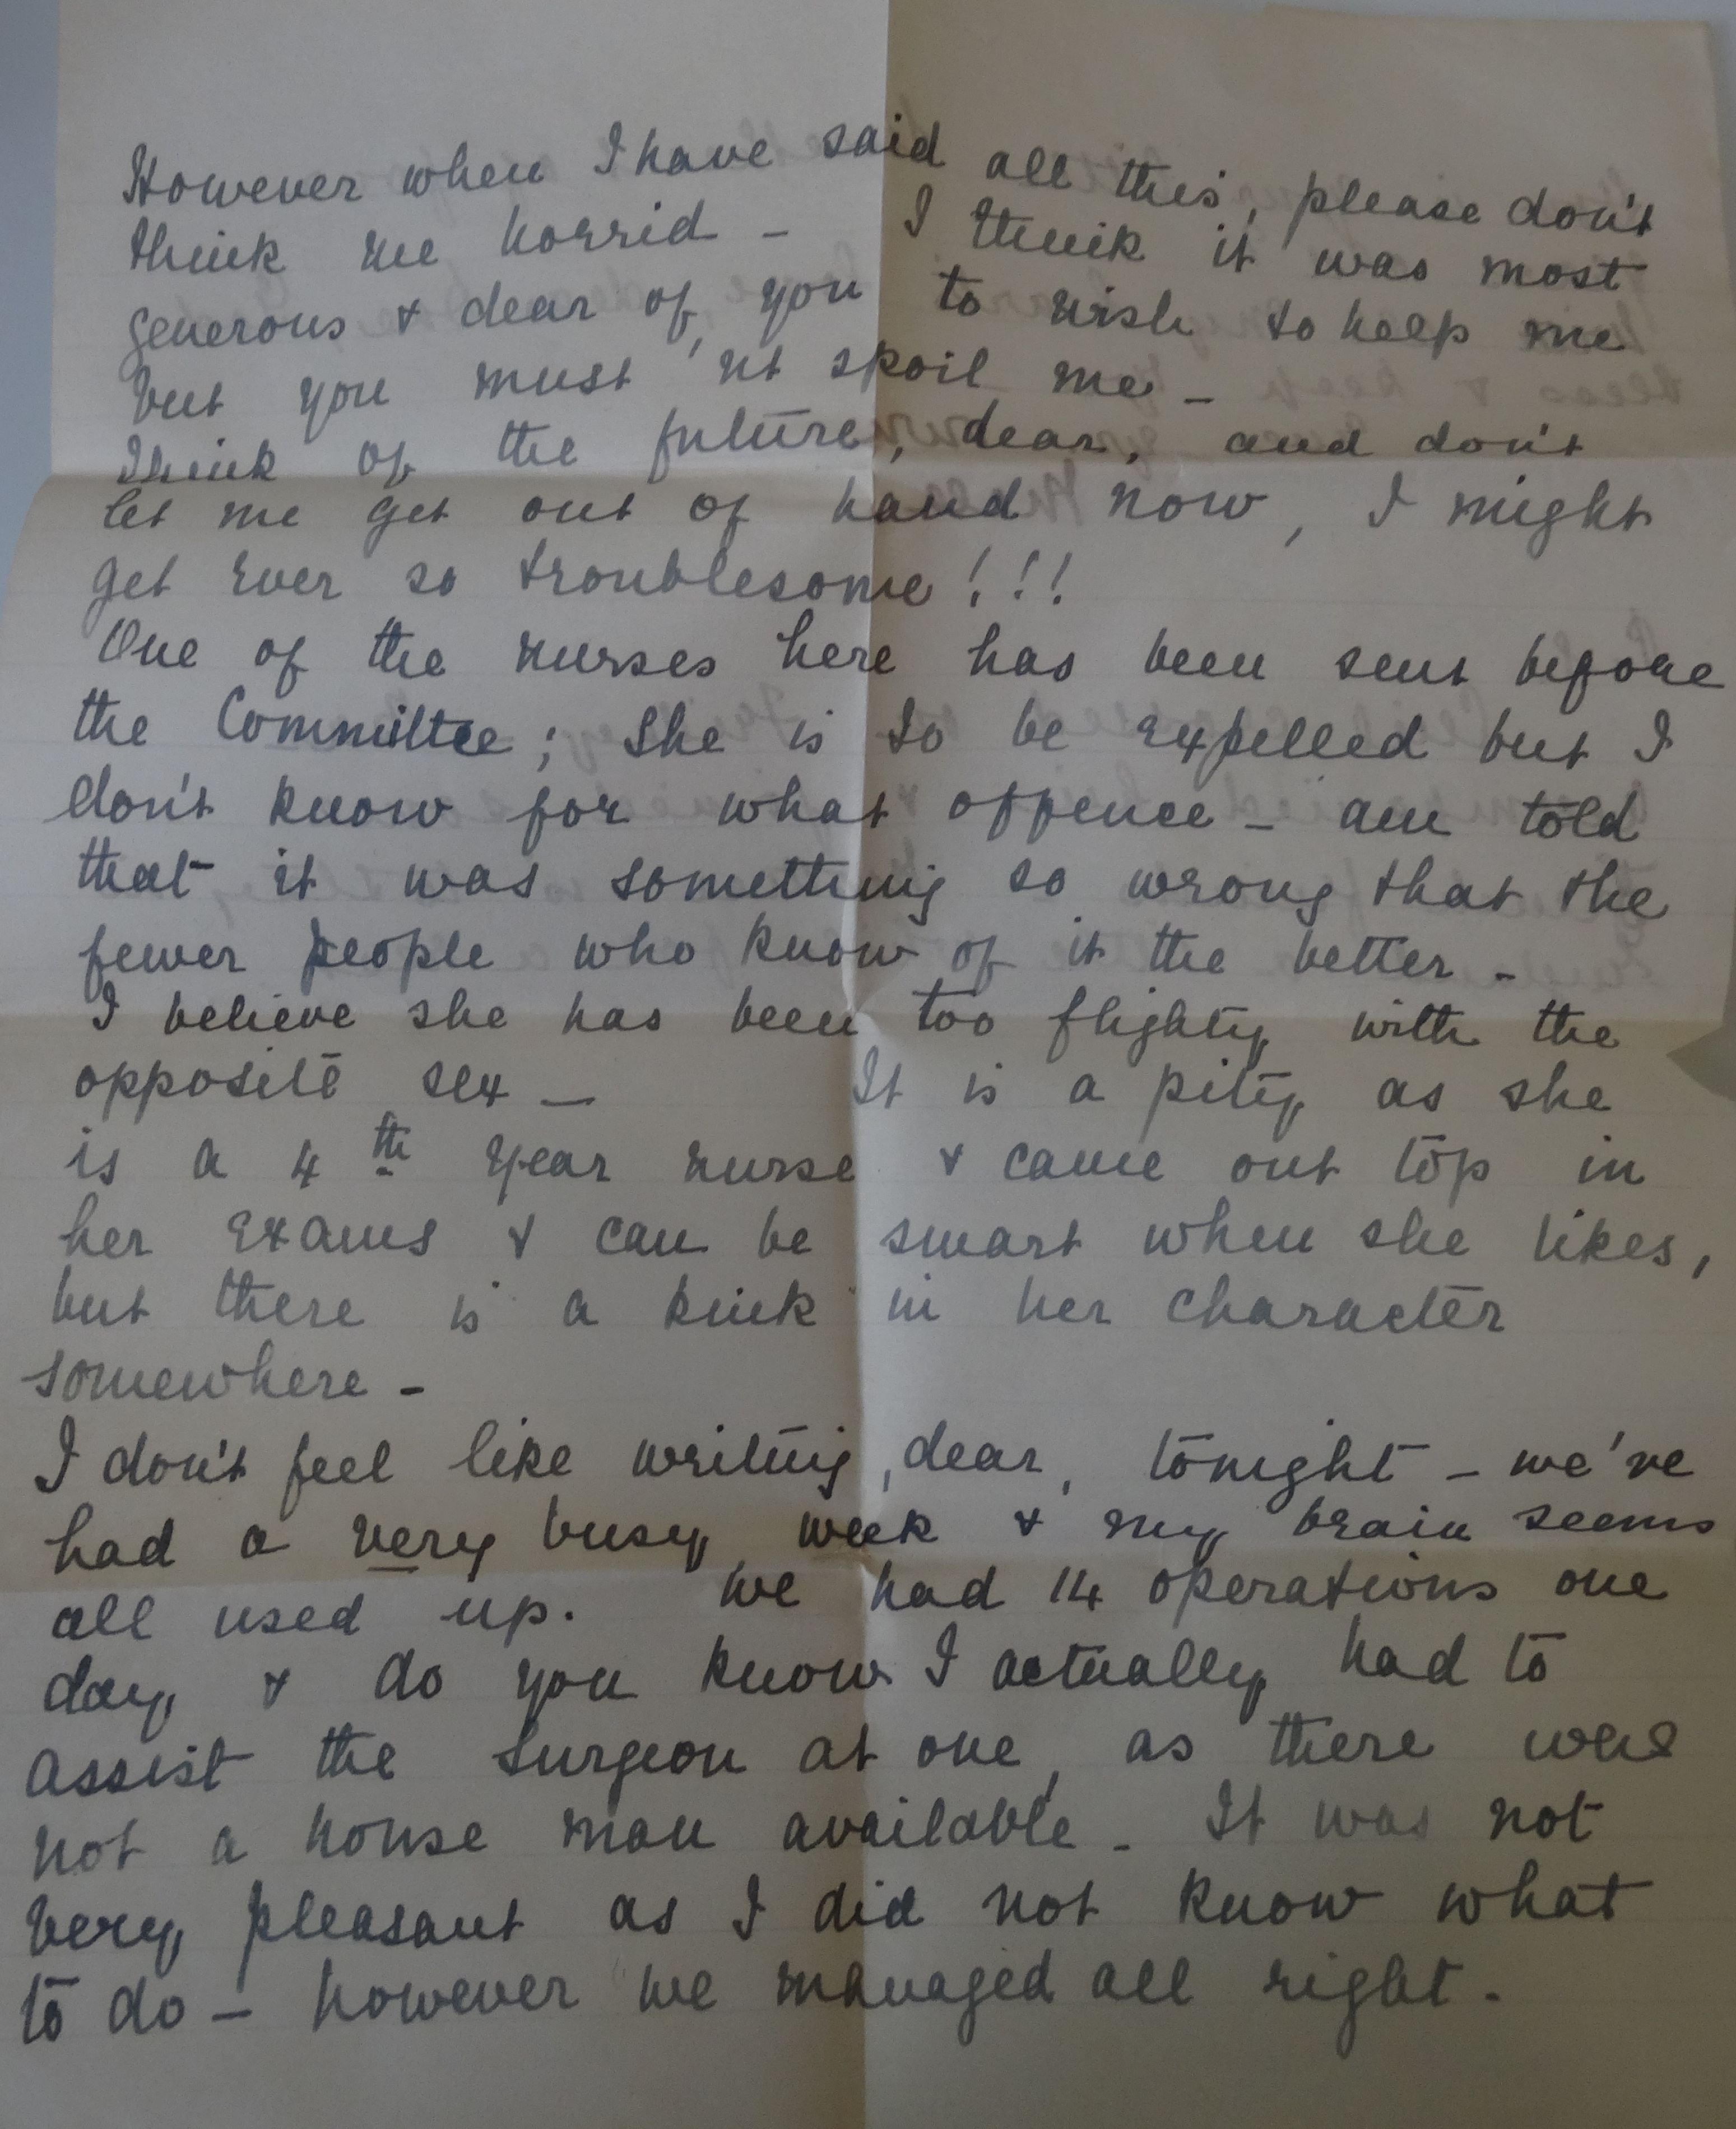 However when I have said all this, please don't
think me horrid - I think it was most
generous & dear of you to wish to help me
but you must 'nt spoil me -
Think of the future, dear, and don't
let me get out of hand now, I might
get ever so troublesome!!!
One of the nurses here has been sent before
the Committee; She is to be expelled but I
don't know for what offence - am told
that it was something so wrong that the
fewer people who know of it the better -
I believe she has been too flighty with the
opposite sex - It is a pity as she
is a 4th year nurse & came out top in
her exams & can be smart when she likes,
but there is a kink in her character
somewhere -
I don't feel like writing, dear, tonight - we've
had a very busy week & my brain seems
all used up. We had 14 operations one
day & do you know I actually had to
assist the surgeon at one, as there was
not a house man available - It was not
very pleasant as I did not know what
to do - however we managed all right.